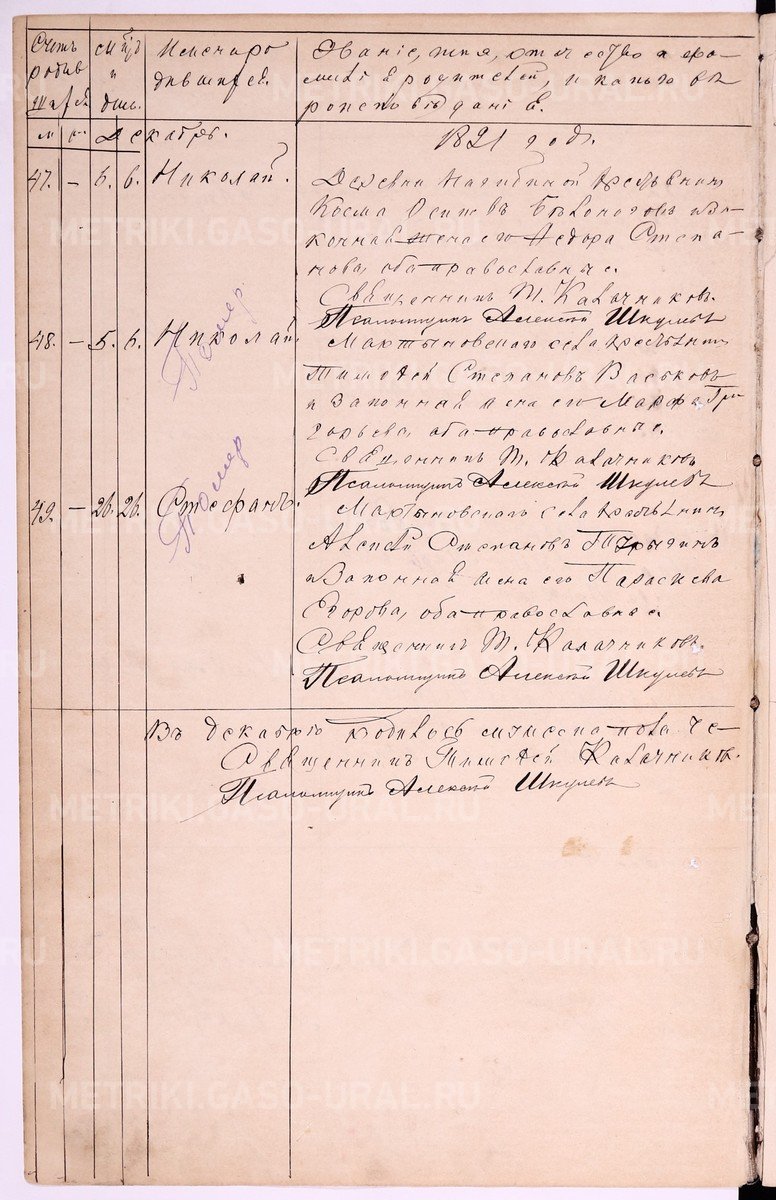 Счетъ родив шихся
м. ж.
м[ѣ]с[я]цъ и дни.
Имена ро
дившихся.
Званіе, имя, отчество и фа
милія родителей, и какого вѣ
роисповѣданія.
Декабрь.
1891 годъ.
47. – 5. 6. Николай.
Деревни крестьянинъ
Косма Осиповъ Бѣлоноговъ и за
конная жена его Ѳедора Степа-
нова, оба православные.
Священникъ Т. Калачниковъ.
Псаломщикъ Алексѣй Шкулевъ
48. – 5. 6. Николай.
Помер
Мартыновскаго села крестьянинъ
Тимоѳей Степановъ Васьковъ
и законная жена его Марфа Гри
горьева, оба православные.
Священникъ Т. Калачниковъ
Псаломщикъ Алексѣй Шкулевъ
49. – 26. 26. Стефанъ.
Помер
Мартыновскаго села крестьянинъ
Алексѣй Степановъ
и законная жена его Параскева
Егорова, оба православные.
Священникъ Т. Калачниковъ.
Псаломщикъ Алексѣй Шкулевъ
Въ декабрѣ родилось мужеска пола
Священникъ Тимоѳей Калачниковъ.
Псаломщикъ Алексѣй Шкулевъ
METRIKI.GASO-URAL.RU